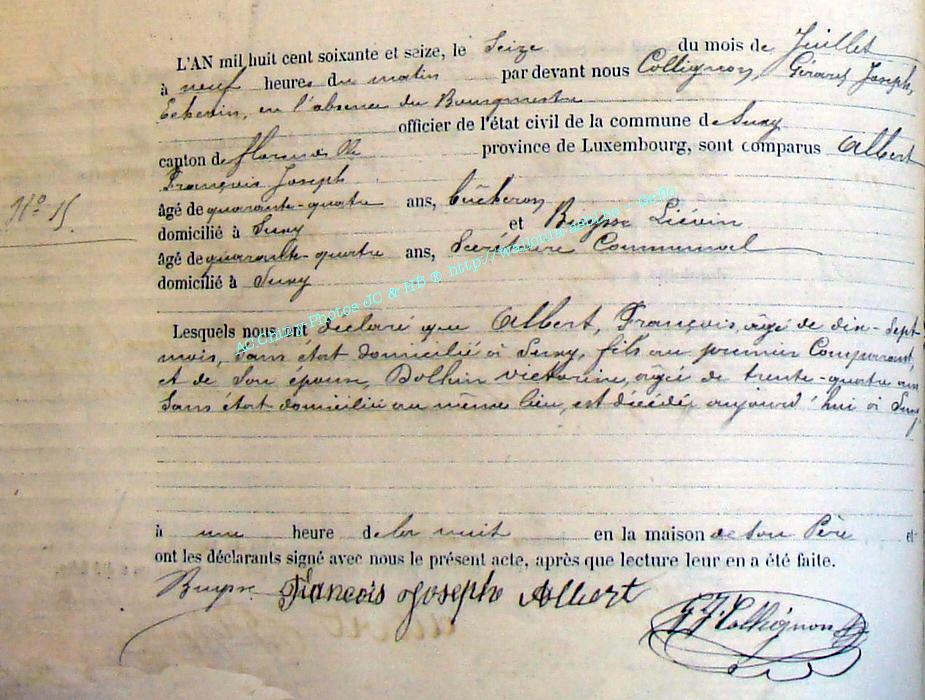 L'AN mil huit cent soixante et seize, le Seize du mois de Juillet
à neuf heures du matin par devant nous Collignon, Gérard Joseph,
Echevin, en l'absence du Bourgmestre
officier de l'état civil de la commune de Suxy
canton de Florenville province de Luxembourg, sont comparus Albert
François Joseph
N° 15.
âgé de quarante-quatre ans, bûcheron
domicilié à Suxy et Buysse Liévin
âgé de quarante-quatre ans, Secrétaire Communal
domicilié à Suxy
AC Chiny Photos JC & HB ® http://
Lesquels nous ont déclaré que Albert, François, âgé de dix-sept
mois, sans état domicilié à Suxy, fils au premier Comparant,
et de son épouse, Dolhin Victorine, âgée de trente-quatre ans
Sans état domicilié au même lieu, est décédé aujourd'hui à Suxy
à une heure de la nuit en la maison de son Père et
ont les déclarants signé avec nous le présent acte, après que lecture leur en a été faite.
Buysse François Joseph Albert
G J Collignon